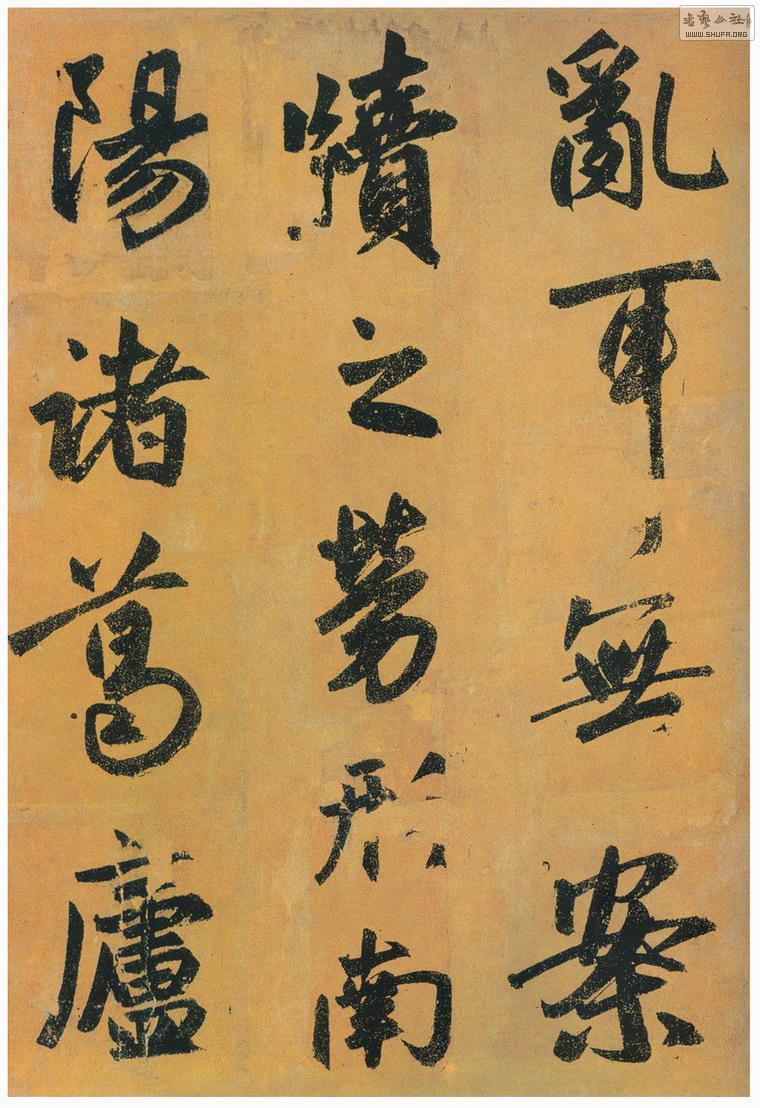 亂耳、無案
牘之勞形南
陽諸葛廬
书艺公社
WWW.SHUFA.ORG